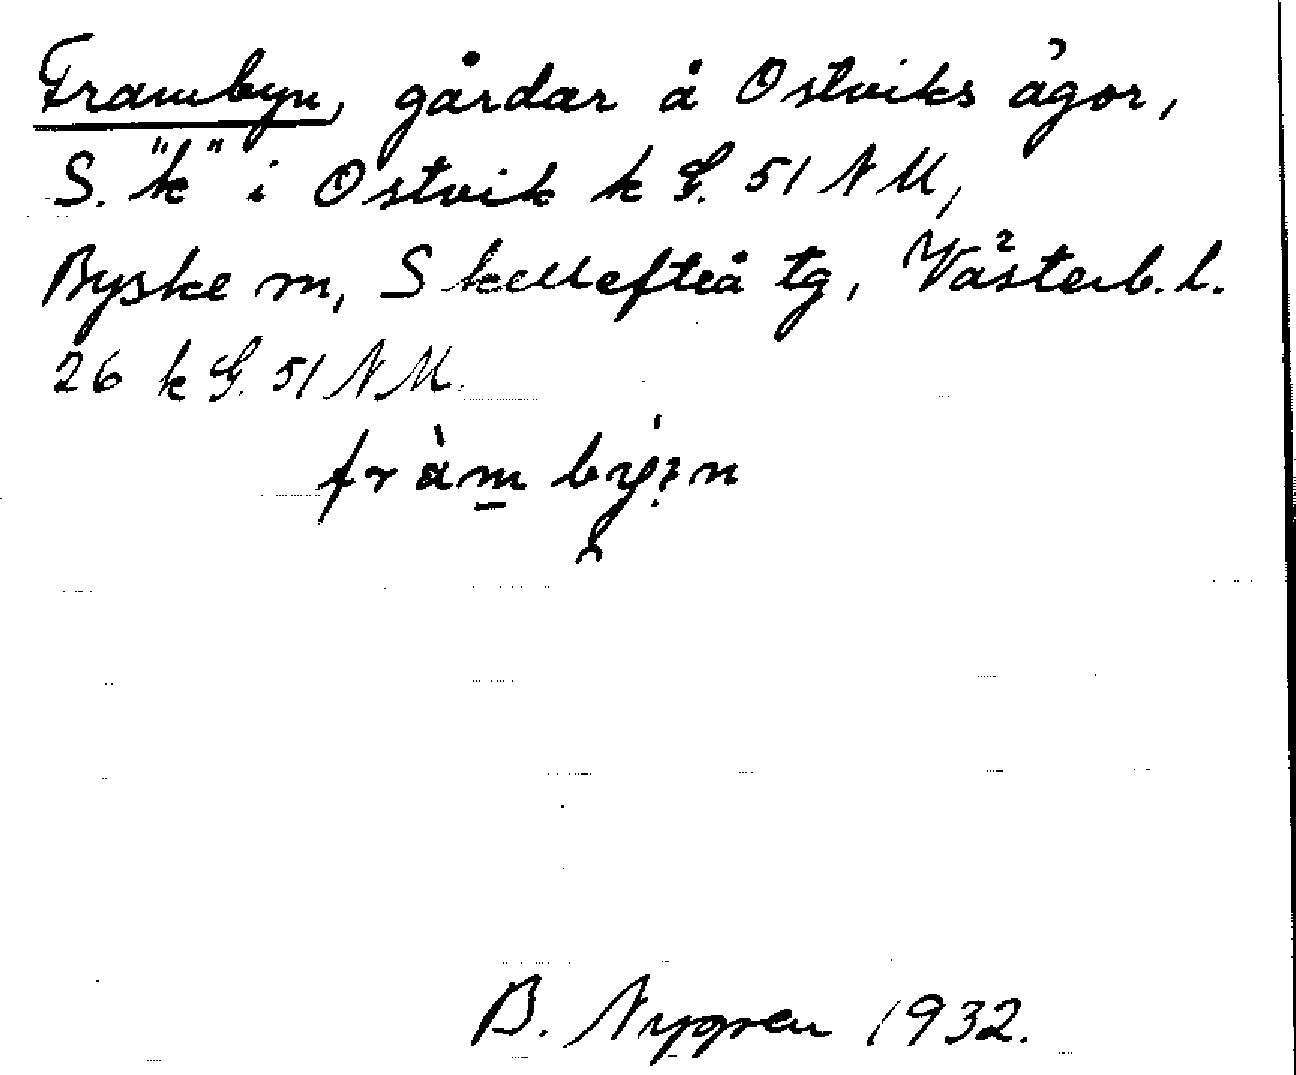 Frambyn, gårdar å Ostviks ägor,
S. "k" i Ostvik k G. 51 NM,
Byske sn, Skellefteå tg, Västerb. l.
26 k G. 51 NM.
B. Nygren 1932.